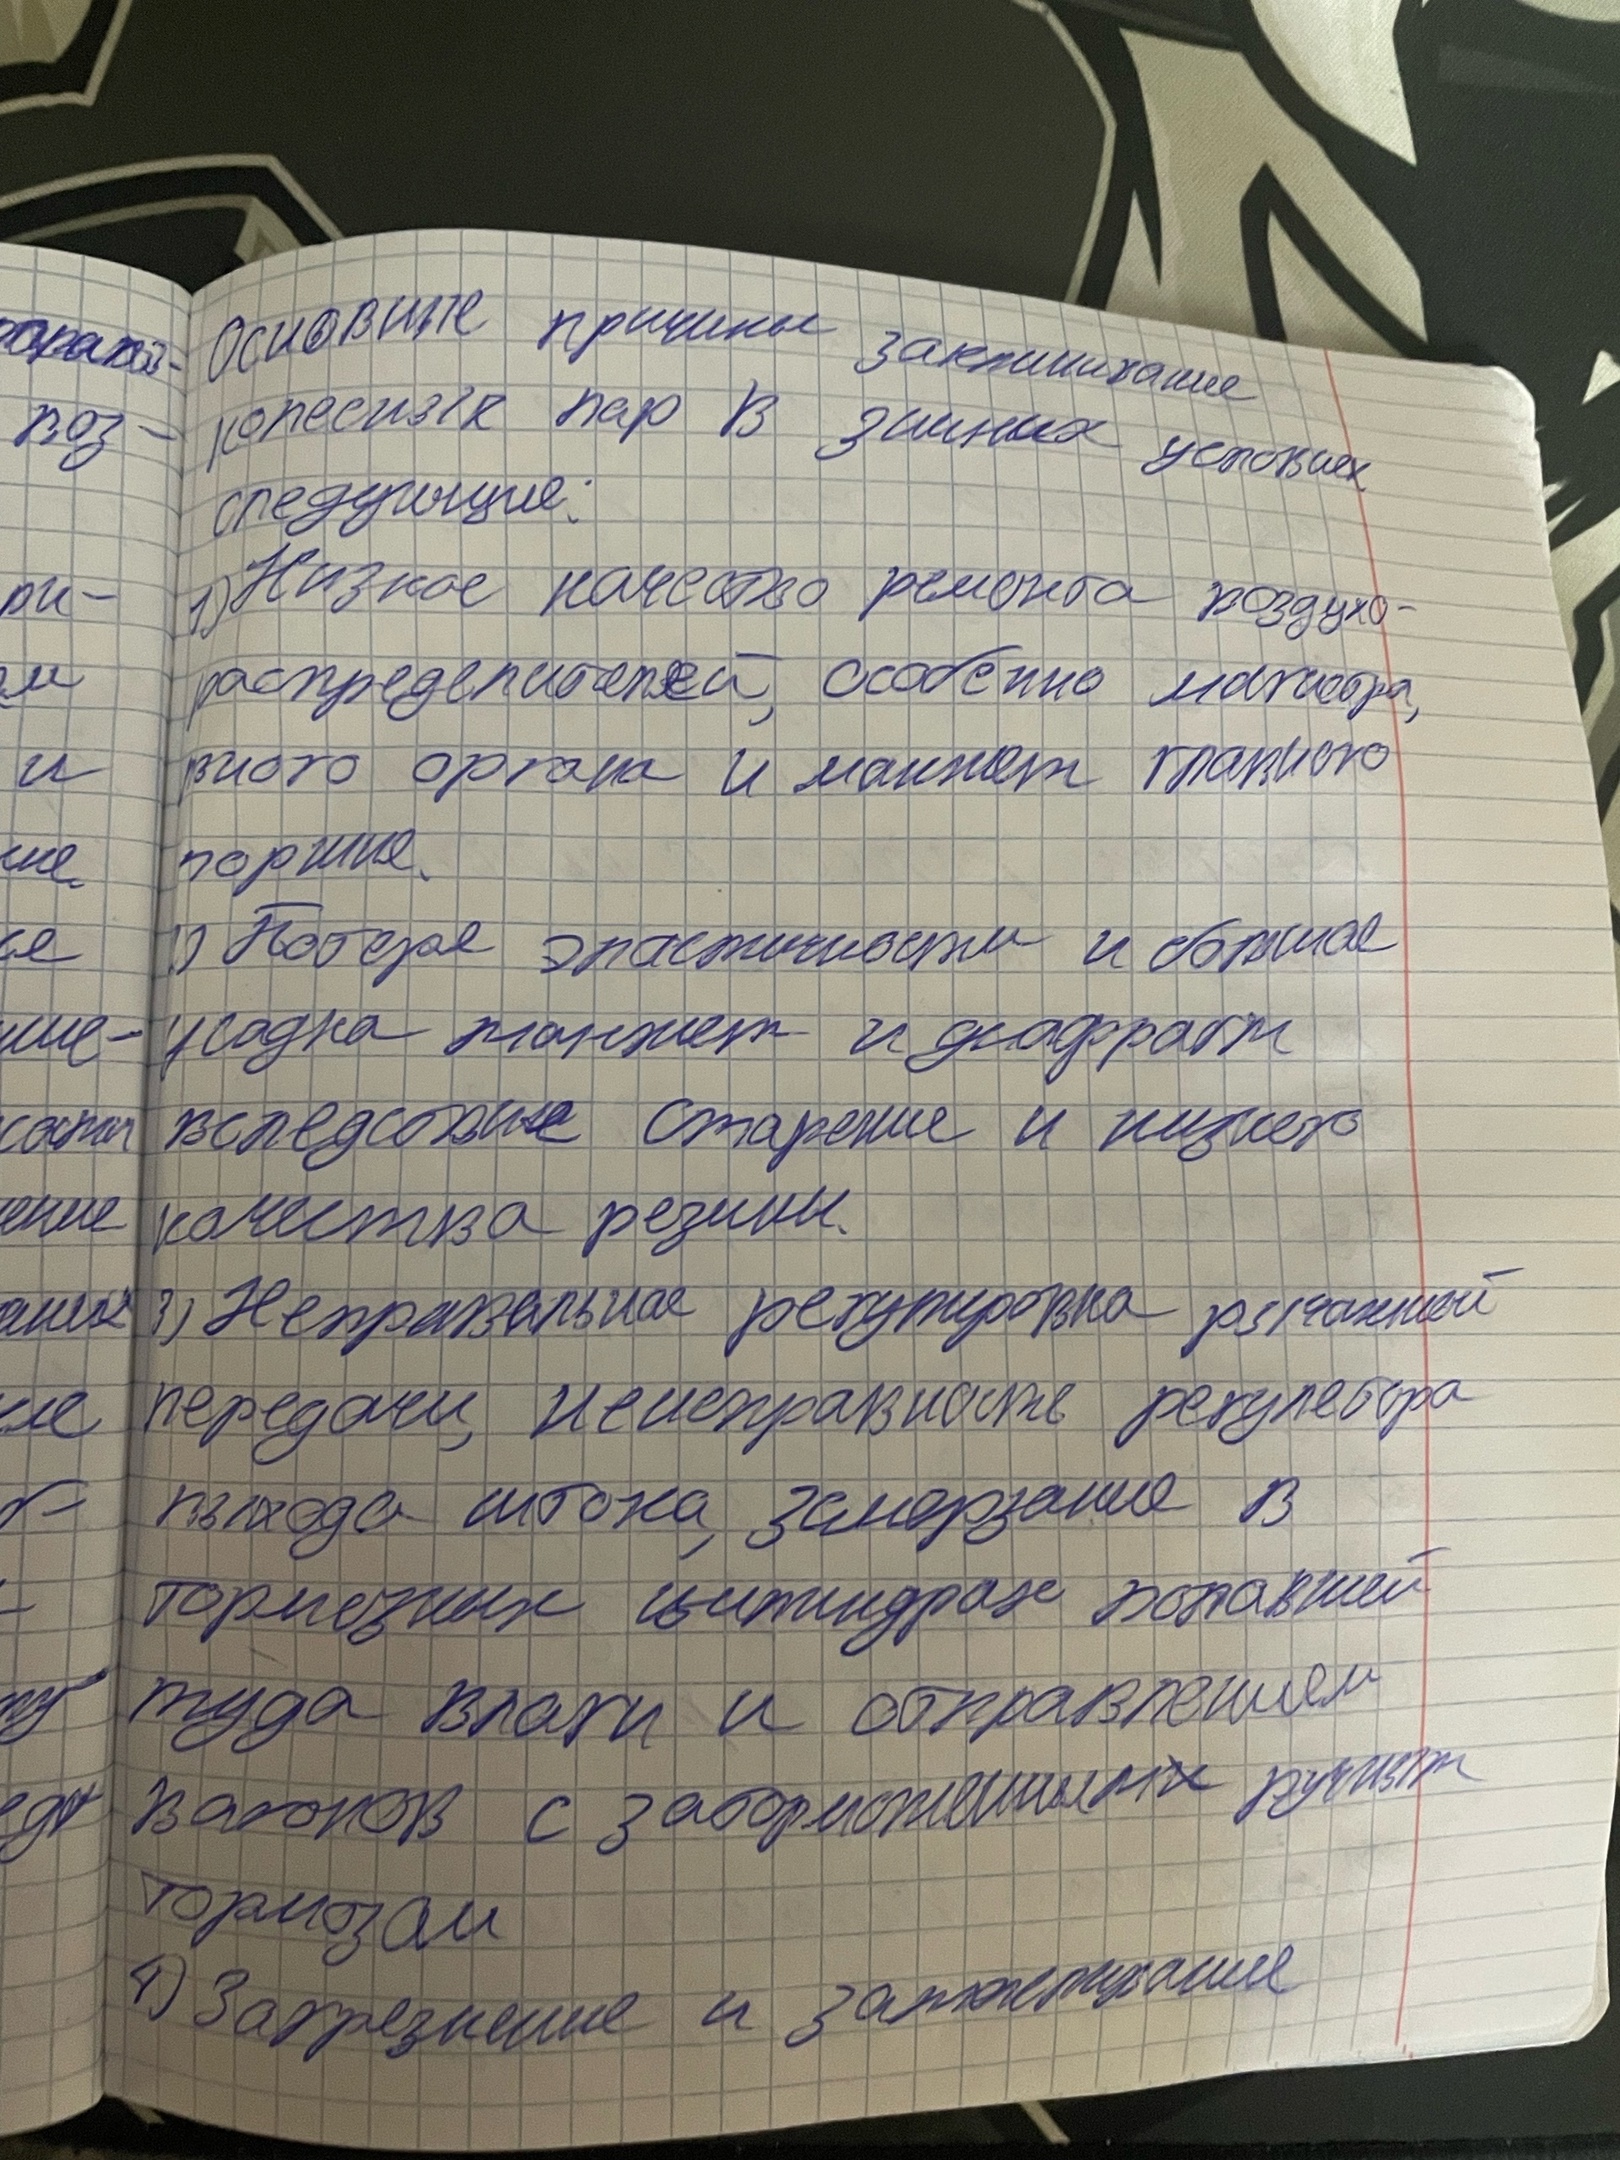 Основные причины заклинивание
колесных пар в зимних условиях
следующие:
1) Низкое качество ремонта воздухо-
распределителей, особенно магистра,
вного органа и манжет главного
поршня.
2) Потеря эластичности и большая
усадка манжет и диафрагм
вследствие старение и низкого
качества резины.
3) Неправильная регулировка рычажной
передачи, неисправность регулятора
выхода штока, замерзание в
тормозных цилиндрах попавшей
туда влаги и отправлением
вагонов с заторможенными ручным
тормозам
4) Загрязнение и